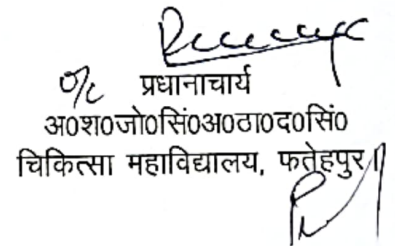 o/c प्रधानाचार्य
अ0श0जो0सिं0अ0ठा0द0सिं0
चिकित्सा महाविद्यालय, फतेहपुर